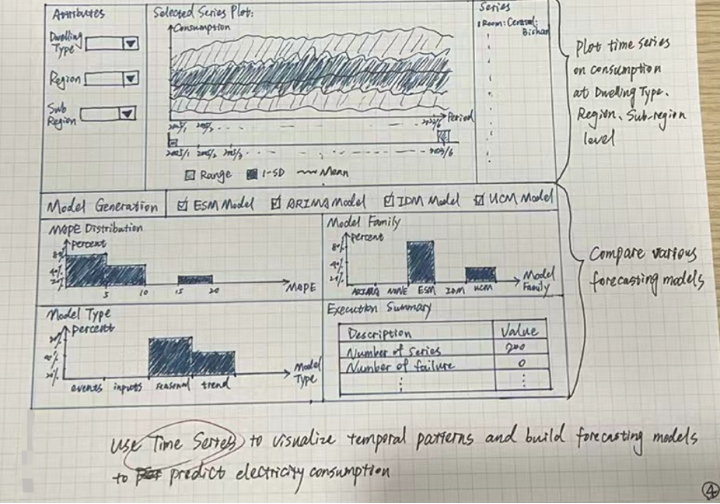 Attributes
Dwelling
Type
Region
Sub
Region
Selected Series Plot:
Consumption
Period
2005/1 2005/2
2005/1 2005/2 2005/3
Range 1-SD Mean
Series
Room: Central:
Bishan
Plot time series
on consumption
at Dwelling Type.
Region. Sub-region
level
Model Generation ESM Model ARIMA Model IDM Model UCM Model
MAPE Distribution
percent
80%
40%
20%
5 10 15 20 MAPE
Model Family
percent
80%
40%
20%
ARIMA NAIVE ESM IDM UCM
Model
Family
Compare various
forecasting models
Model Type
percent
20%
events inputs seasonal trend
Model
Type
Execution Summary
Description Value
Number of Series 200
Number of failure 0
Use Time Series to visualize temporal patterns and build forecasting models
to predict electricity consumption
4